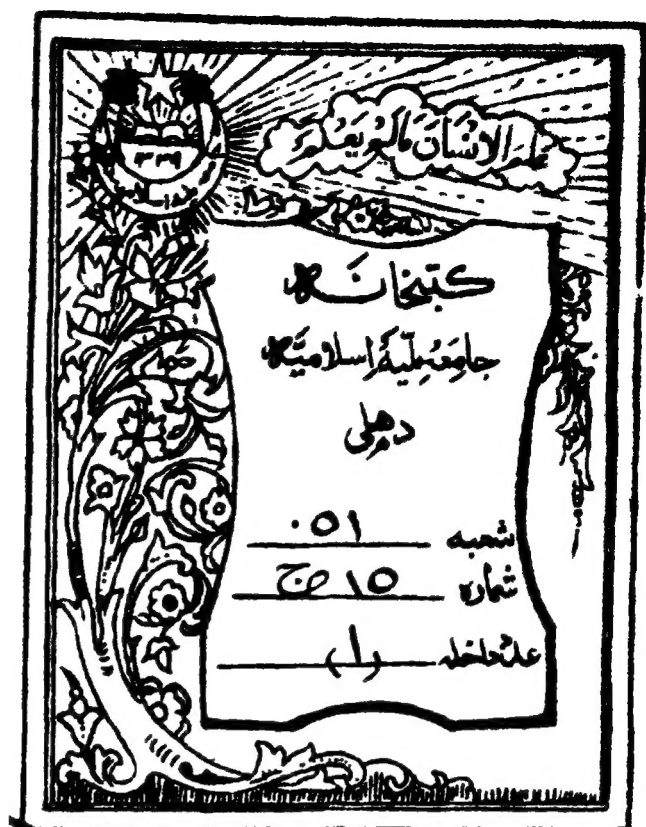 علم الانسان مالم يعلم
۱۳۳۹
كتبخانه
جامعہ ملیہ اسلامیہ
دهلی
شعبه ۰۵۱
شماره ۱۵ ج
علد داخله (۱)